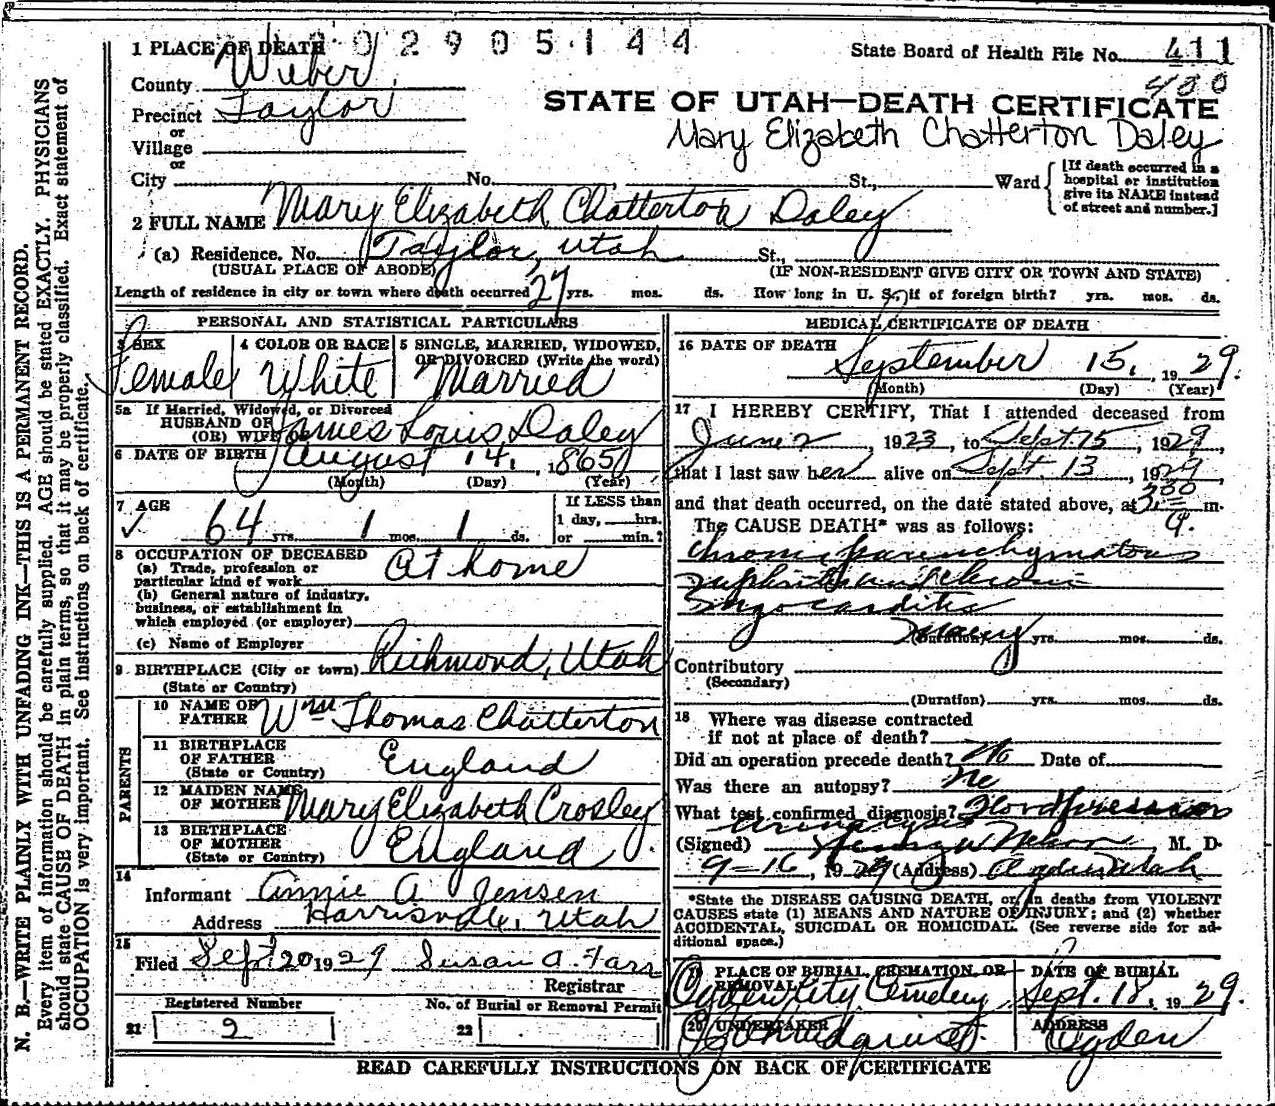 1 PLACE OF DEATH 2905144 State Board of Health File No. 411
County Weber 430
Precinct Taylor STATE OF UTAH—DEATH CERTIFICATE
or
Village Mary Elizabeth Chatterton Daley
or
City No. St., Ward [If death occurred in a hospital or institution give its NAME instead of street and number.]
2 FULL NAME Mary Elizabeth Chatterton Daley
(a) Residence. No. Taylor, Utah St.,
(USUAL PLACE OF ABODE) (IF NON-RESIDENT GIVE CITY OR TOWN AND STATE)
Length of residence in city or town where death occurred 27 yrs. mos. ds. How long in U. S., if of foreign birth? yrs. mos. ds.
PERSONAL AND STATISTICAL PARTICULARS
3 SEX 4 COLOR OR RACE 5 SINGLE, MARRIED, WIDOWED,
OR DIVORCED (Write the word)
Female White Married
5a If Married, Widowed, or Divorced
HUSBAND OF
(OR) WIFE OF James Louis Daley
6 DATE OF BIRTH August 14, 1865
(Month) (Day) (Year)
7 AGE If LESS than
64 yrs. 1 mos. 1 ds. 1 day, hrs.
or min.?
8 OCCUPATION OF DECEASED
(a) Trade, profession or
particular kind of work At home
(b) General nature of industry,
business, or establishment in
which employed (or employer)
(c) Name of Employer
9 BIRTHPLACE (City or town) Richmond, Utah
(State or Country)
PARENTS
10 NAME OF
FATHER Wm Thomas Chatterton
11 BIRTHPLACE
OF FATHER England
(State or Country)
12 MAIDEN NAME
OF MOTHER Mary Elizabeth Crosley
13 BIRTHPLACE
OF MOTHER England
(State or Country)
14
Informant Annie A. Jensen
Address Harrisville, Utah
15
Filed Sept 20 1929 Susan A. Farr
Registrar
Registered Number No. of Burial or Removal Permit
21 2 22
MEDICAL CERTIFICATE OF DEATH
16 DATE OF DEATH
September 15, 1929.
(Month) (Day) (Year)
17 I HEREBY CERTIFY, That I attended deceased from
June 2, 1923, to Sept. 15, 1929,
that I last saw her alive on Sept. 13, 1929,
and that death occurred, on the date stated above, at 3:00 m.
The CAUSE DEATH* was as follows: a.
Chronic parenchymatous
nephritis and chronic
myocarditis
(Duration) Many yrs. mos. ds.
Contributory
(Secondary)
(Duration) yrs. mos. ds.
18 Where was disease contracted
if not at place of death?
Did an operation precede death? No Date of
Was there an autopsy? No
What test confirmed diagnosis? Blood pressure
urinalysis
(Signed) Nelson, M. D.
9-16, 1929 (Address) Ogden Utah
*State the DISEASE CAUSING DEATH, or, in deaths from VIOLENT
CAUSES state (1) MEANS AND NATURE OF INJURY; and (2) whether
ACCIDENTAL, SUICIDAL OR HOMICIDAL. (See reverse side for ad-
ditional space.)
19 PLACE OF BURIAL, CREMATION, OR
REMOVAL DATE OF BURIAL
Ogden City Cemetery Sept. 18, 1929.
20 UNDERTAKER ADDRESS
Ogden
READ CAREFULLY INSTRUCTIONS ON BACK OF CERTIFICATE
N. B.—WRITE PLAINLY WITH UNFADING INK—THIS IS A PERMANENT RECORD.
Every item of information should be carefully supplied. AGE should be stated EXACTLY. PHYSICIANS
should state CAUSE OF DEATH in plain terms, so that it may be properly classified. Exact statement of
OCCUPATION is very important. See instructions on back of certificate.